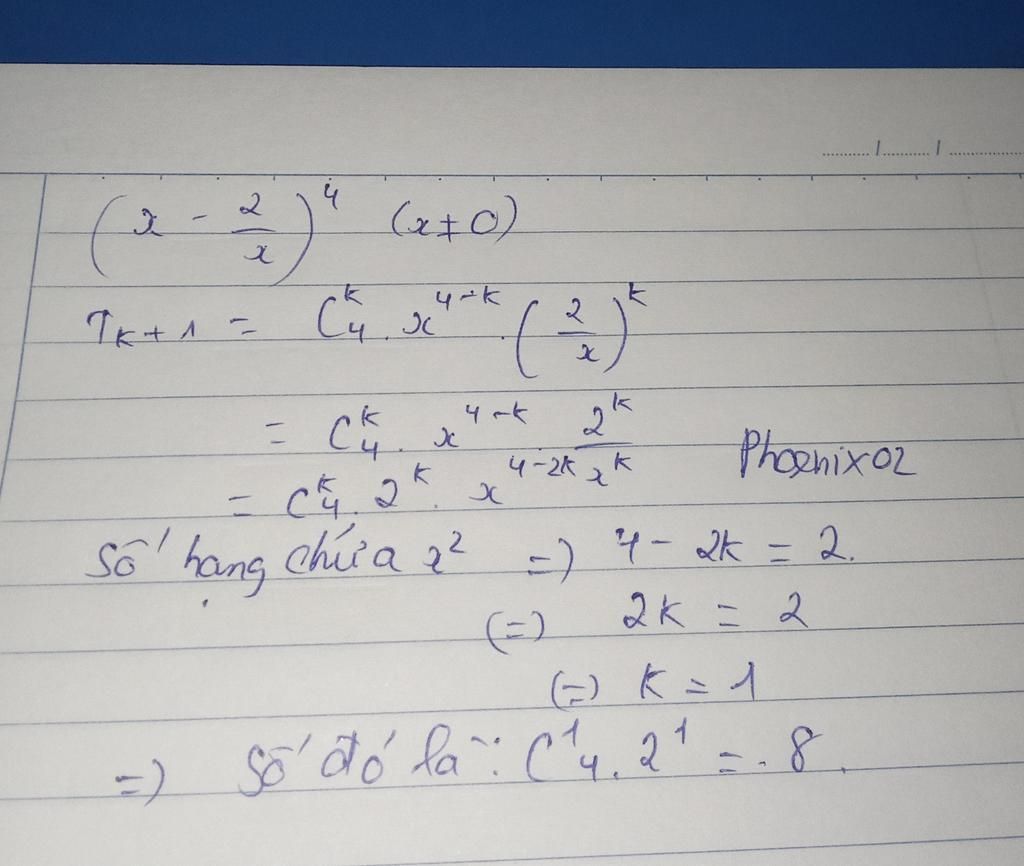 (x - 2/x)^4 (x ≠ 0)
T_{k+1} = C_4^k . x^{4-k} . (2/x)^k
= C_4^k . x^{4-k} 2^k/x^k
Phoenix02
= C_4^k . 2^k . x^{4-2k}
Số hạng chứa x^2 => 4 - 2k = 2.
(=) 2k = 2
(=) k = 1
=) Số đó là : C_4^1 . 2^1 = . 8 .